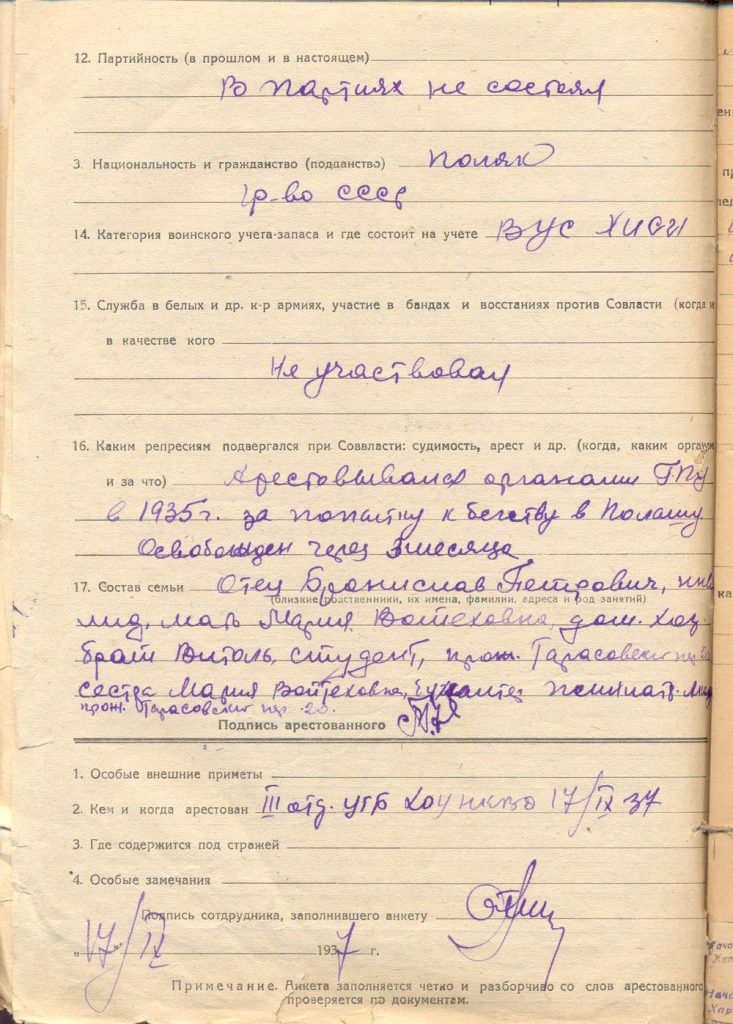 12. Партийность (в прошлом и в настоящем)
В партиях не состоял
3. Национальность и гражданство (подданство) поляк
гр-во СССР
14. Категория воинского учета-запаса и где состоит на учете ВУС ХИСИ
15. Служба в белых и др. к-р армиях, участие в бандах и восстаниях против Совласти (когда и
в качестве кого
Не участвовал
16. Каким репресиям подвергался при Соввласти: судимость, арест и др. (когда, каким орган
и за что) Арестовывался органами ГПУ
в 1935 г. за попытку к бегству в Польшу
Освобожден через 3 месяца
17. Состав семьи Отец Бронислав Петрович, инва
(близкие родственники, их имена, фамилии, адреса и род занятий)
лид, мать Мария Войтеховна, дом. хоз.
брат Витоль, студент, прож. Тарасовский пер.
сестра Мария Войтеховна,
прож. Тарасовский пер. 20.
Подпись арестованного
1. Особые внешние приметы
2. Кем и когда арестован III отд. УГБ ХОУ НКВД 17/IX 37
3. Где содержится под стражей
4. Особые замечания
Подпись сотрудника, заполнившего анкету
„17/IX 1937 г.
Примечание. Анкета заполняется четко и разборчиво со слов арестованного
проверяется по документам.